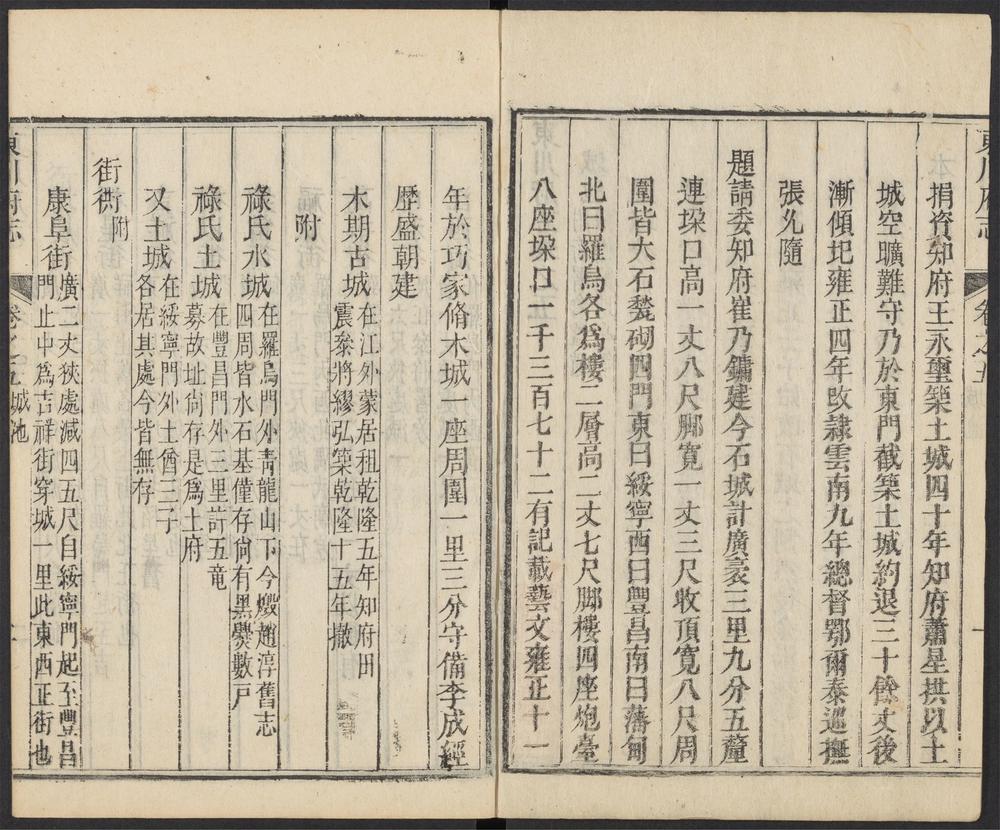 捐資知府王永璽築土城四十年知府蕭星拱以土
城空曠難守乃於東門截築土城約退三十餘丈後
漸傾圮雍正四年改隸雲南九年總督鄂爾泰巡撫
張允隨
題請委知府崔乃鏞建今石城計廣袤三里九分五釐
連垛口高一丈八尺脚寬一丈三尺收頂寬八尺周
圍皆大石甃砌四門東曰綏寧西曰豐昌南曰藩甸
北曰羅烏各爲樓二層高二丈七尺脚樓四座炮臺
八座垛口一千三百七十二有記載藝文雍正十一
年於巧家脩木城一座周圍一里三分守備李成經
歷盛朝建
木期古城在江外蒙居租乾隆五年知府田
震叅將繆弘築乾隆十五年撤
附
祿氏水城在羅烏門外青龍山下今燬趙淳舊志
四周皆水石基僅存尚有黑爨數戸
祿氏土城在豐昌門外三里許五竜
募故址尚存是爲土府
又土城在綏寧門外土酋三子
各居其處今皆無存
街衖附
康阜街廣二丈狹處減四五尺自綏寧門起至豐昌
門止中爲吉祥街穿城一里此東西正街也
東川府志
卷之五
城池